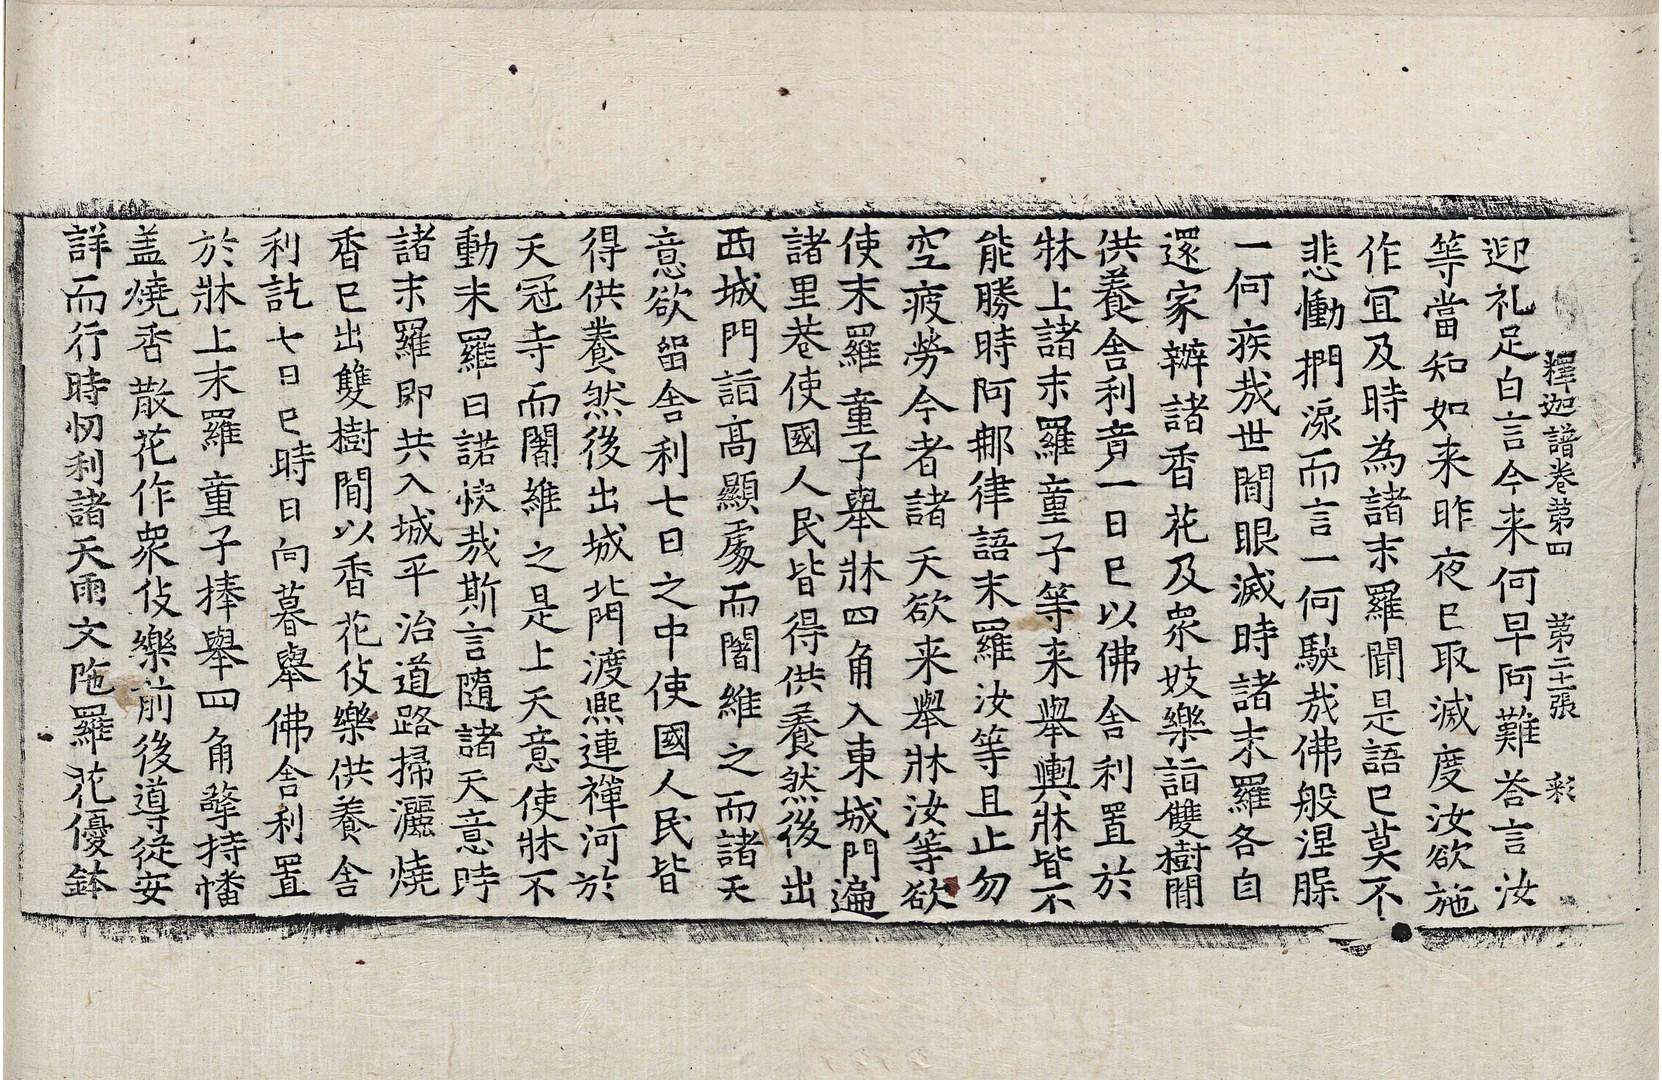 釋迦譜卷第四　第二十張　彩
迎礼足白言今来何早阿難荅言汝
等當知如来昨夜已取滅度汝欲施
作冝及時為諸末羅聞是語已莫不
悲慟捫淚而言一何駛哉佛般涅槃
一何疾哉世間眼滅時諸末羅各自
還家辦諸香花及眾妓樂詣雙樹間
供養舍利竟一日已以佛舍利置於
牀上諸末羅童子等来舉輿牀皆不
能勝時阿那律語末羅汝等且止勿
空疲勞今者諸天欲来舉牀汝等欲
使末羅童子舉牀四角入東城門遍
諸里巷使國人民皆得供養然後出
西城門詣高顯處而闍維之而諸天
意欲留舍利七日之中使國人民皆
得供養然後出城北門渡熙連禪河於
天冠寺而闍維之是上天意使牀不
動末羅曰諾快哉斯言隨諸天意時
諸末羅即共入城平治道路掃灑燒
香已出雙樹間以香花伎樂供養舍
利訖七日已時日向暮舉佛舍利置
於牀上末羅童子捧舉四角擎持幡
盖燒香散花作眾伎樂前後導從安
詳而行時忉利諸天雨文陁羅花優鉢